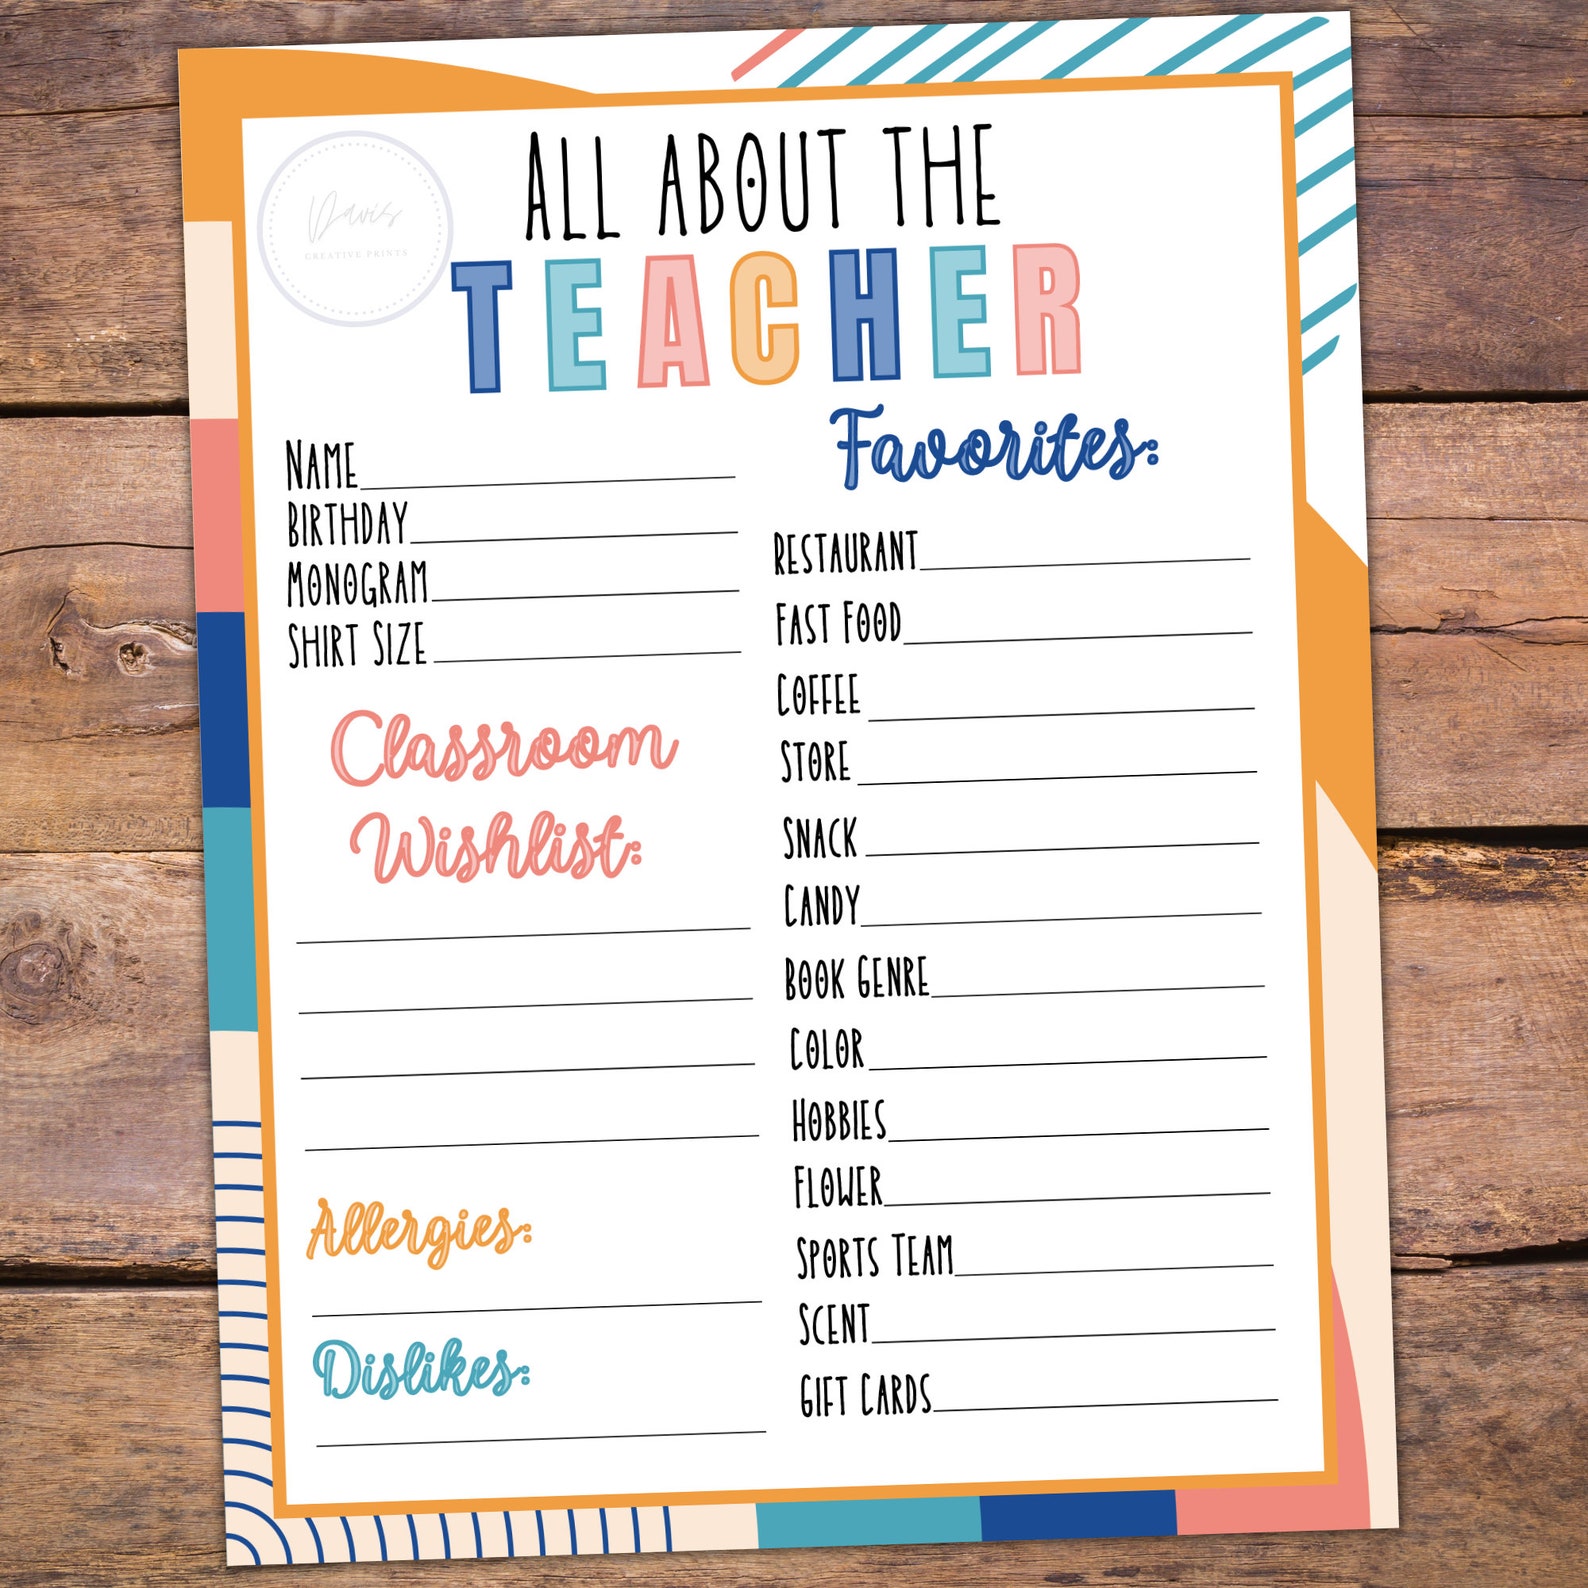 Davis
CREATIVE PRINTS
ALL ABOUT THE
TEACHER
NAME
BIRTHDAY
MONOGRAM
SHIRT SIZE
Classroom
Wishlist:
Allergies:
Dislikes:
Favorites:
RESTAURANT
FAST FOOD
COFFEE
STORE
SNACK
CANDY
BOOK GENRE
COLOR
HOBBIES
FLOWER
SPORTS TEAM
SCENT
GIFT CARDS